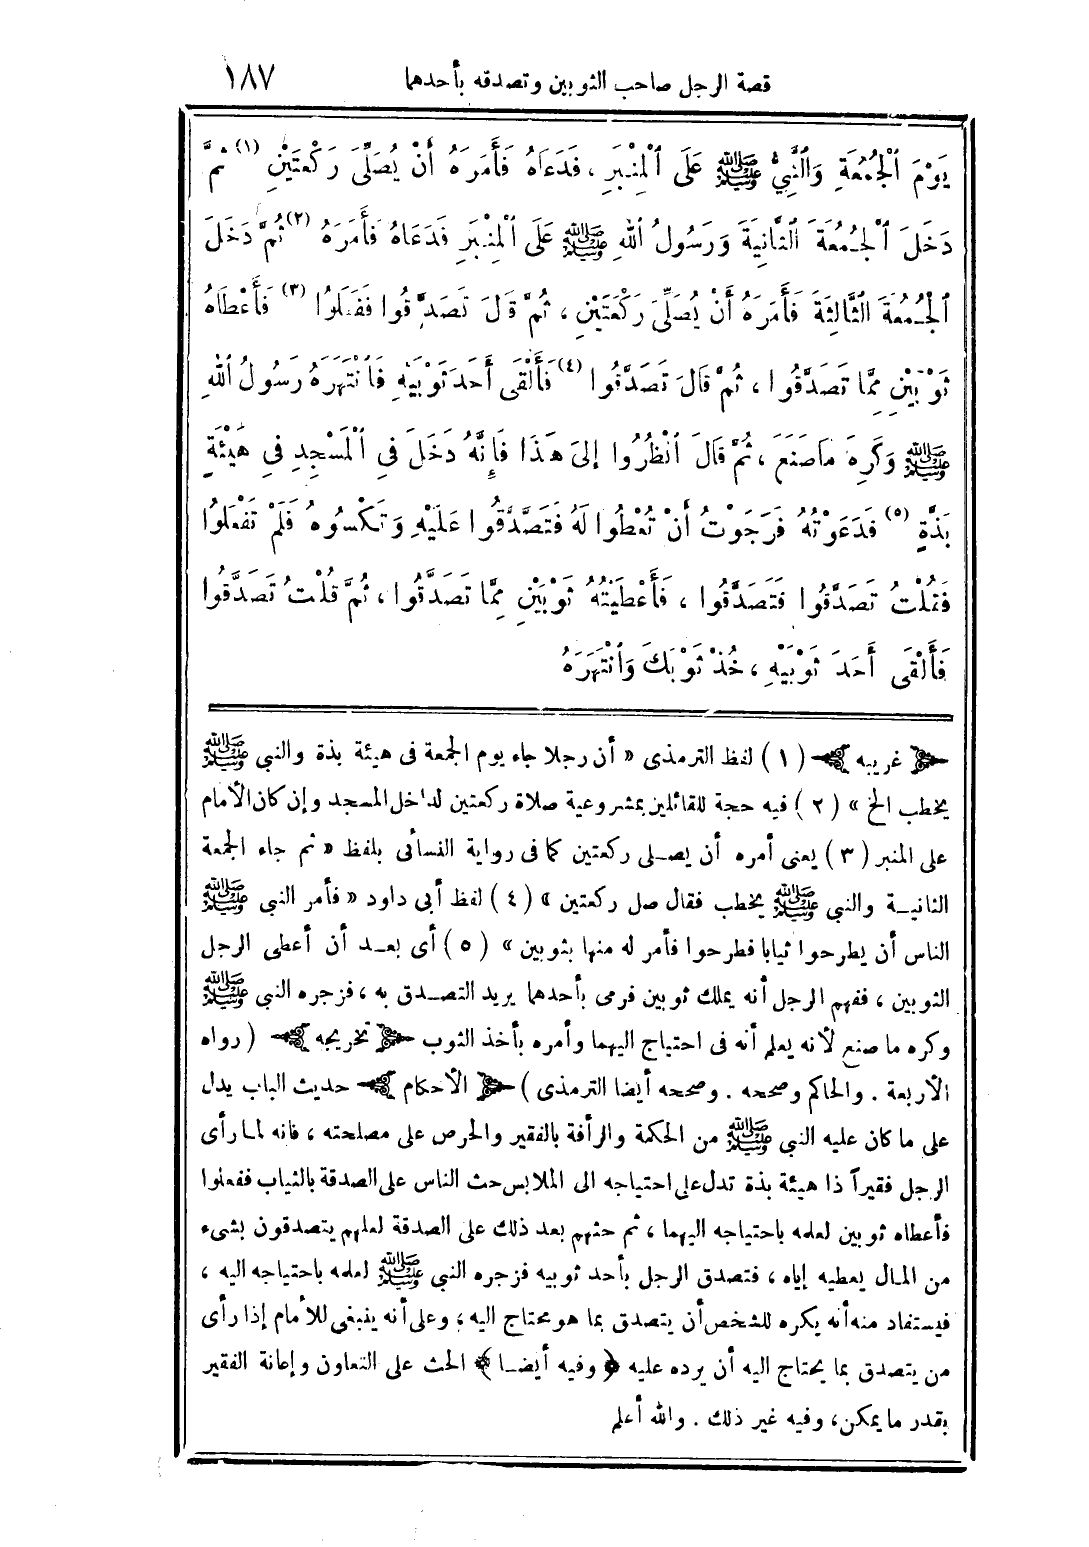 قصة الرجل صاحب الثوبين وتصدقه بأحدهما ١٨٧
يَوْمَ ٱلْجُمُعَةِ وَٱلنَّبِيُّ ﷺ عَلَى ٱلْمِنْبَرِ ، فَدَعَاهُ فَأَمَرَهُ أَنْ يُصَلِّىَ رَكْعَتَيْنِ (١) ثُمَّ
دَخَلَ ٱلْجُمُعَةَ الثَّانِيَةَ وَرَسُولُ ٱللهِ ﷺ عَلَى ٱلْمِنْبَرِ فَدَعَاهُ فَأَمَرَهُ (٢) ثُمَّ دَخَلَ
ٱلْجُمُعَةَ الثَّالِثَةَ فَأَمَرَهُ أَنْ يُصَلِّىَ رَكْعَتَيْنِ ، ثُمَّ قَالَ تَصَدَّقُوا فَفَعَلُوا (٣) فَأَعْطَاهُ
ثَوْبَيْنِ مِمَّا تَصَدَّقُوا ، ثُمَّ قَالَ تَصَدَّقُوا (٤) فَأَلْقَى أَحَدَ ثَوْبَيْهِ فَانْتَهَرَهُ رَسُولُ ٱللهِ
ﷺ وَكَرِهَ مَا صَنَعَ ، ثُمَّ قَالَ ٱنْظُرُوا إِلَى هَذَا فَإِنَّهُ دَخَلَ فِى ٱلْمَسْجِدِ فِى هَيْئَةٍ
بَذَّةٍ (٥) فَدَعَوْتُهُ فَرَجَوْتُ أَنْ تُعْطُوا لَهُ فَتَصَّدَّقُوا عَلَيْهِ وَتَكْسُوهُ فَلَمْ تَفْعَلُوا
فَقُلْتُ تَصَدَّقُوا فَتَصَدَّقُوا ، فَأَعْطَيْتُهُ ثَوْبَيْنِ مِمَّا تَصَدَّقُوا ، ثُمَّ قُلْتُ تَصَدَّقُوا
فَأَلْقَى أَحَدَ ثَوْبَيْهِ ، خُذْ ثَوْبَكَ وَٱنْتَهَرَهُ
﴿ غريبه ﴾ (١) لفظ الترمذى « أن رجلا جاء يوم الجمعة فى هيئة بذة والنبي ﷺ
يخطب الخ » (٢) فيه حجة للقائلين بمشروعية صلاة ركعتين لداخل المسجد وإن كان الأمام
على المنبر (٣) يعنى أمره أن يصلى ركعتين كما فى رواية النسائى بلفظ « ثم جاء الجمعة
الثانية والنبي ﷺ يخطب فقال صل ركعتين » (٤) لفظ أبى داود « فأمر النبي ﷺ
الناس أن يطرحوا ثيابا فطرحوا فأمر له منها بثوبين » (٥) أى بعد أن أعطى الرجل
الثوبين ، ففهم الرجل أنه يملك ثوبين فرمى بأحدهما يريد التصدق به ، فزجره النبي ﷺ
وكره ما صنع لأنه يعلم أنه فى احتياج اليهما وأمره بأخذ الثوب ﴿ تخريجه ﴾ (رواه
الأربعة . والحاكم وصححه . وصححه أيضا الترمذى) ﴿ الأحكام ﴾ حديث الباب يدل
على ما كان عليه النبي ﷺ من الحكمة والرأفة بالفقير والحرص على مصلحته ، فانه لما رأى
الرجل فقيراً ذا هيئة بذة تدل على احتياجه الى الملابس حث الناس على الصدقة بالثياب ففعلوا
فأعطاه ثوبين لعلمه باحتياجه اليهما ، ثم حثهم بعد ذلك على الصدقة لعلهم يتصدقون بشىء
من المال يعطيه إياه ، فتصدق الرجل بأحد ثوبيه فزجره النبي ﷺ لعلمه باحتياجه اليه ،
فيستفاد منه أنه يكره للشخص أن يتصدق بما هو محتاج اليه ؛ وعلى أنه ينبغى للأمام إذا رأى
من يتصدق بما يحتاج اليه أن يرده عليه ﴿ وفيه أيضا ﴾ الحث على التعاون وإعانة الفقير
بقدر ما يمكن ، وفيه غير ذلك . والله أعلم